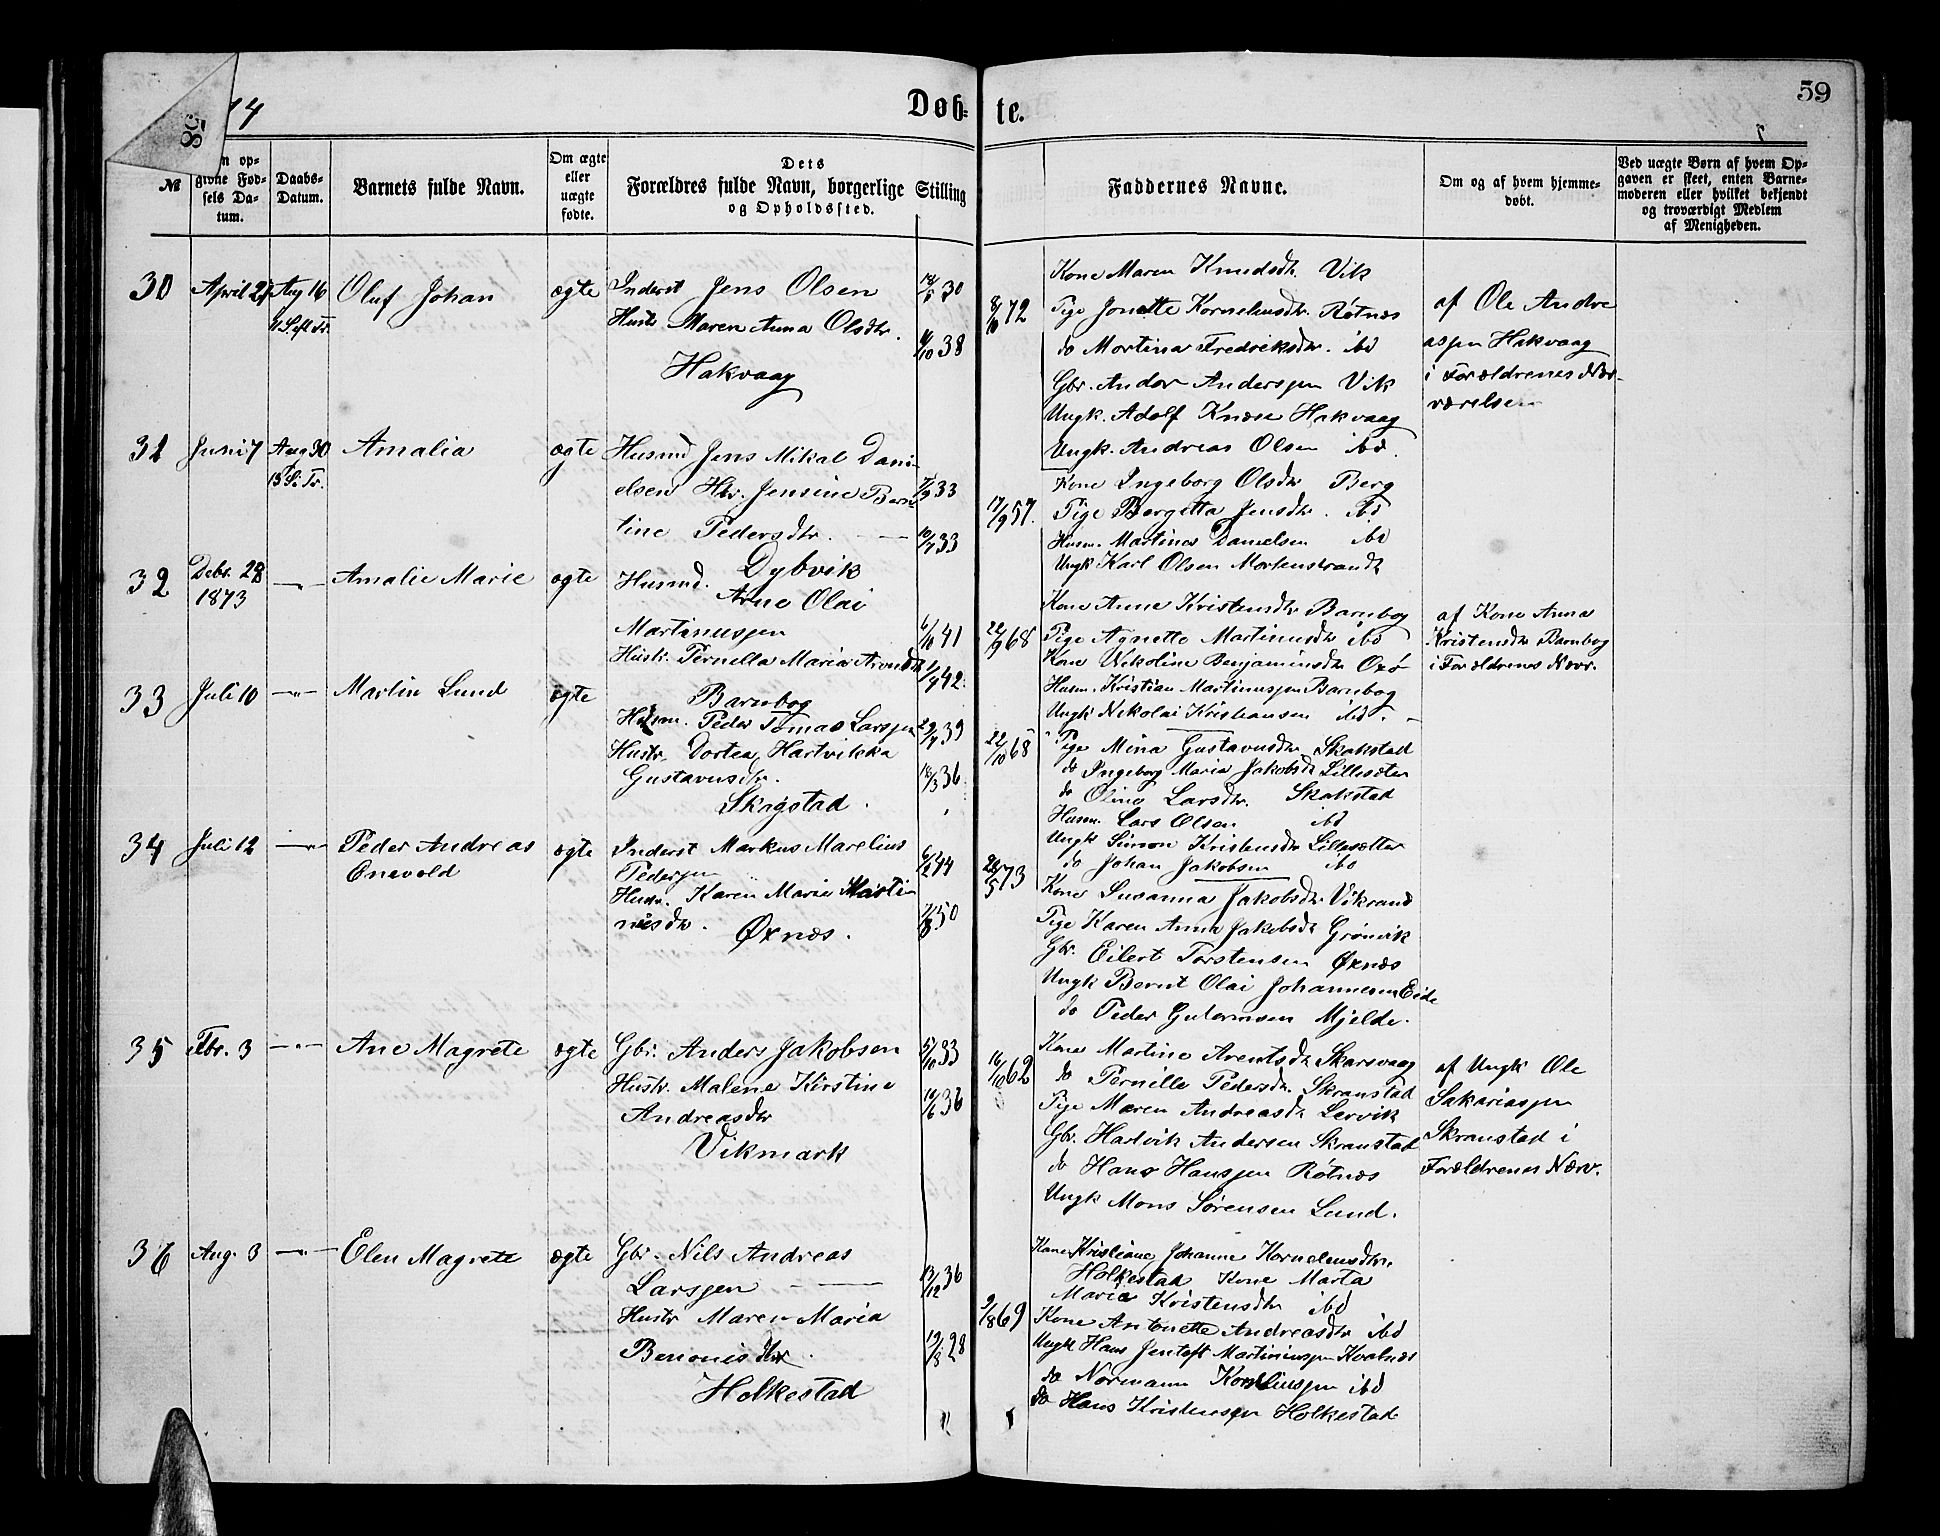 74
58
Døb-
te.
59
No
en op-
givne Fød-
sels Da-
tum.
Daabs-
Datum.
Barnets fulde Navn.
Om ægte
eller
uægte
fødte.
Dets
Forældres fulde Navn, borgerlige Stilling
og Opholdssted.
Faddernes Navne.
Om og af hvem hjemme-
døbt.
Ved uægte Børn af hvem Op-
gaven er skeet, enten Barne-
moderen eller hvilket bekjendt
og troværdigt Medlem
af Menigheden.
30
April 21
Aug 16
11 S eft Tr.
Oluf Johan
ægte
Inderst Jens Olsen
Hustr. Maren Anna Olsdtr.
Hakvaag
30
38
8/10 72
Kone Maren Knudsdtr. Vik
Pige Jonette Kornelius­dtr. Røtnæs
do Martina Fredriksdtr. ibd
Gbr. Andor Anderssen Vik
Ungk. Adolf Knøse Hakvaag
Ungk. Andreas Olsen ibd.
af Ole Andre
assen Hakvaag
i Forældrenes Nær-
værelse
31
Juni 7
Aug 30
13 S. Tr.
Amalia
ægte
Husmd Jens Mikal Dani
elsen Hr. Jensine Bern
tine Pedersdtr.
Dybvik
33
10/7 33
17/9 57.
Kone Ingeborg Olsdtr Berg
Pige Bergitta Jensdtr. ibd
Husm. Martines Danielsen ibd
Ungk Karl Olsen Mortenstrandt
32
Debr. 28
1873
Amalie Marie
ægte
Husmd. Arne Olai
Martinussen
Hustr. Pernella Maria Arntsdtr
Barnbog
6/10 41
1/9 42.
22/9 68
Kone Anne Kristensdtr Barnbog
Pige Agnette Martinusdtr ibd
Kone Nikoline Benjaminsdtr Oxø
Husm. Kristian Martinussen Barnbog
Ungk Nikolai Kristiansen ibd.
af Kone Anna
Kristensdtr Barnbog
i Forældrens Nærv.
33
Juli 10
Martin Lund
ægte
Husm. Peder Tomas Larssen
Hustr. Dortea Hartvikka
Gustavusdtr.
Skagstad.
29/7 39
18/3 36
22/10 68
Pige Mina Gustavusdtr Skakstad
do Ingeborg Maria Jakobsdtr Lillesæter
do Olina Larsdtr. Skakstad
Husm. Lars Olsen ibd
Ungk Simon Kristensdtr Lillesætter
do Johan Jakobsen ibd
34
Juli 12
Peder Andreas
Enevold
ægte
Inderst Markus Marelius
Pedersen
Hustr. Karen Marie Marti
nusdtr.
Øxnæs.
44
50
73
Kone Susanna Jakobsdtr Vikrand
Pige Karen Anna Jakobsdtr Grønvik
Gbr. Eilert Torstensen Øxnæs
Ungk Bernt Olai Johannesen Eide
do Peder Gutormsen Mjelde.
35
Fbr. 3
Ane Magrete
ægte
Gbr. Anders Jakobsen
Hustr. Malene Kirstine
Andreasdtr
Vikmark
33
36
16/10 62
Kone Martine Arentsdtr Skarsvaag
do Pernille Pedersdtr. Skranstad
Pige Maren Andreasdtr Lervik
Gbr. Hartvik Andersen Skranstad
do Hans Hanssen Røtnæs
Ungk Mons Sørensen Lund.
af Ungk Ole
Sakariassen
Skranstad i
Forældrenes Nærv.
36
Aug. 3
Elen Magrete
ægte
Gbr. Nils Andreas
Larssen
Hustr Maren Maria
Benonisdtr.
Holkestad
13/12 36
19/8 28
9/8 69
Kone Kristiane Johanne Korneliusdtr.
Holkestad Kone Marta
Marie Kristensdtr ibd
Kone Antonette Andreasdtr ibd
Ungk Hans Jentoft Martinussen Kvalnæs
do Normann Korneliussen ibd
do Hans Kristensen Holkestad